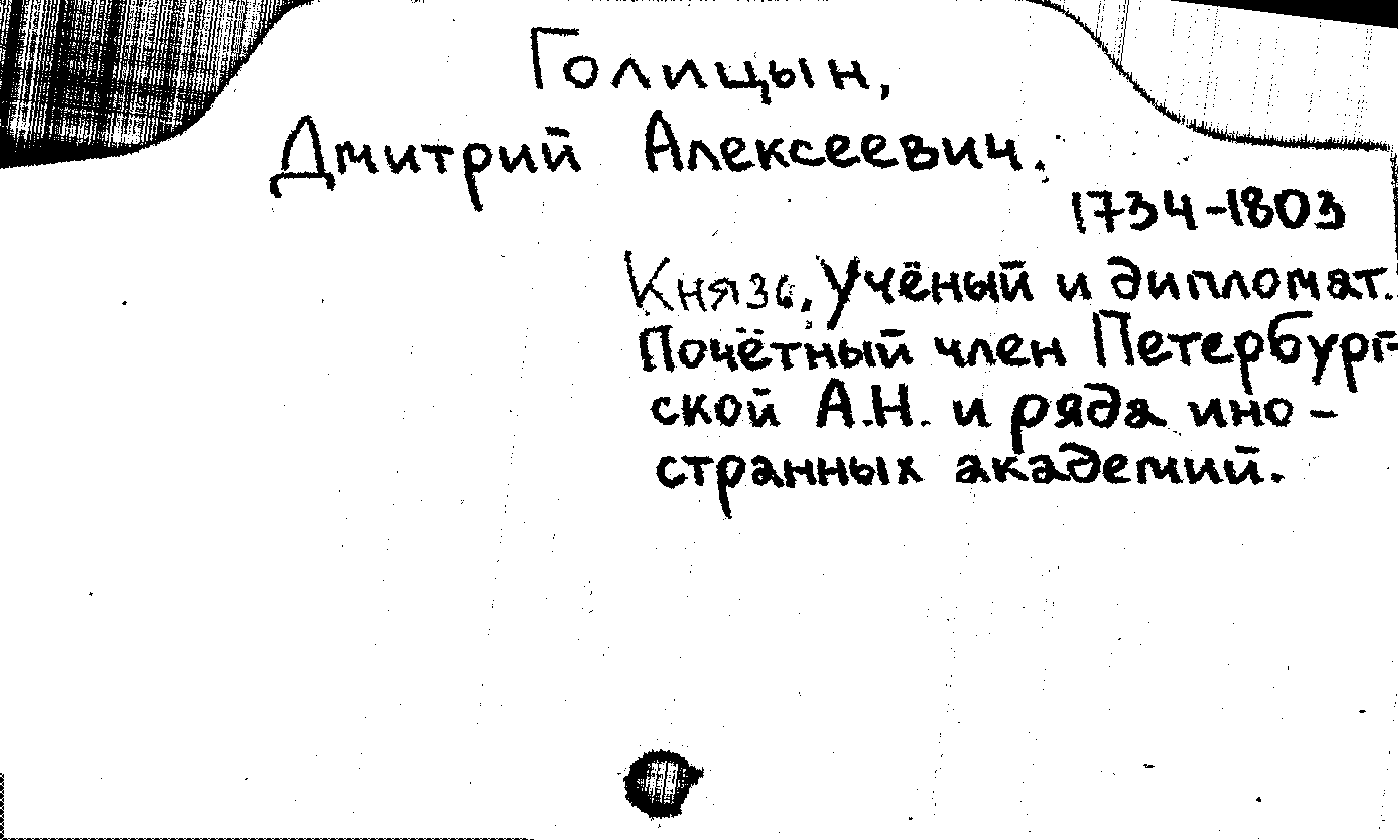 Голицын,
Дмитрий Алексеевич.
1734-1803
Князь. Учёный и дипломат.
Почётный член Петербург-
ской А.Н. и ряда ино-
странных академий.